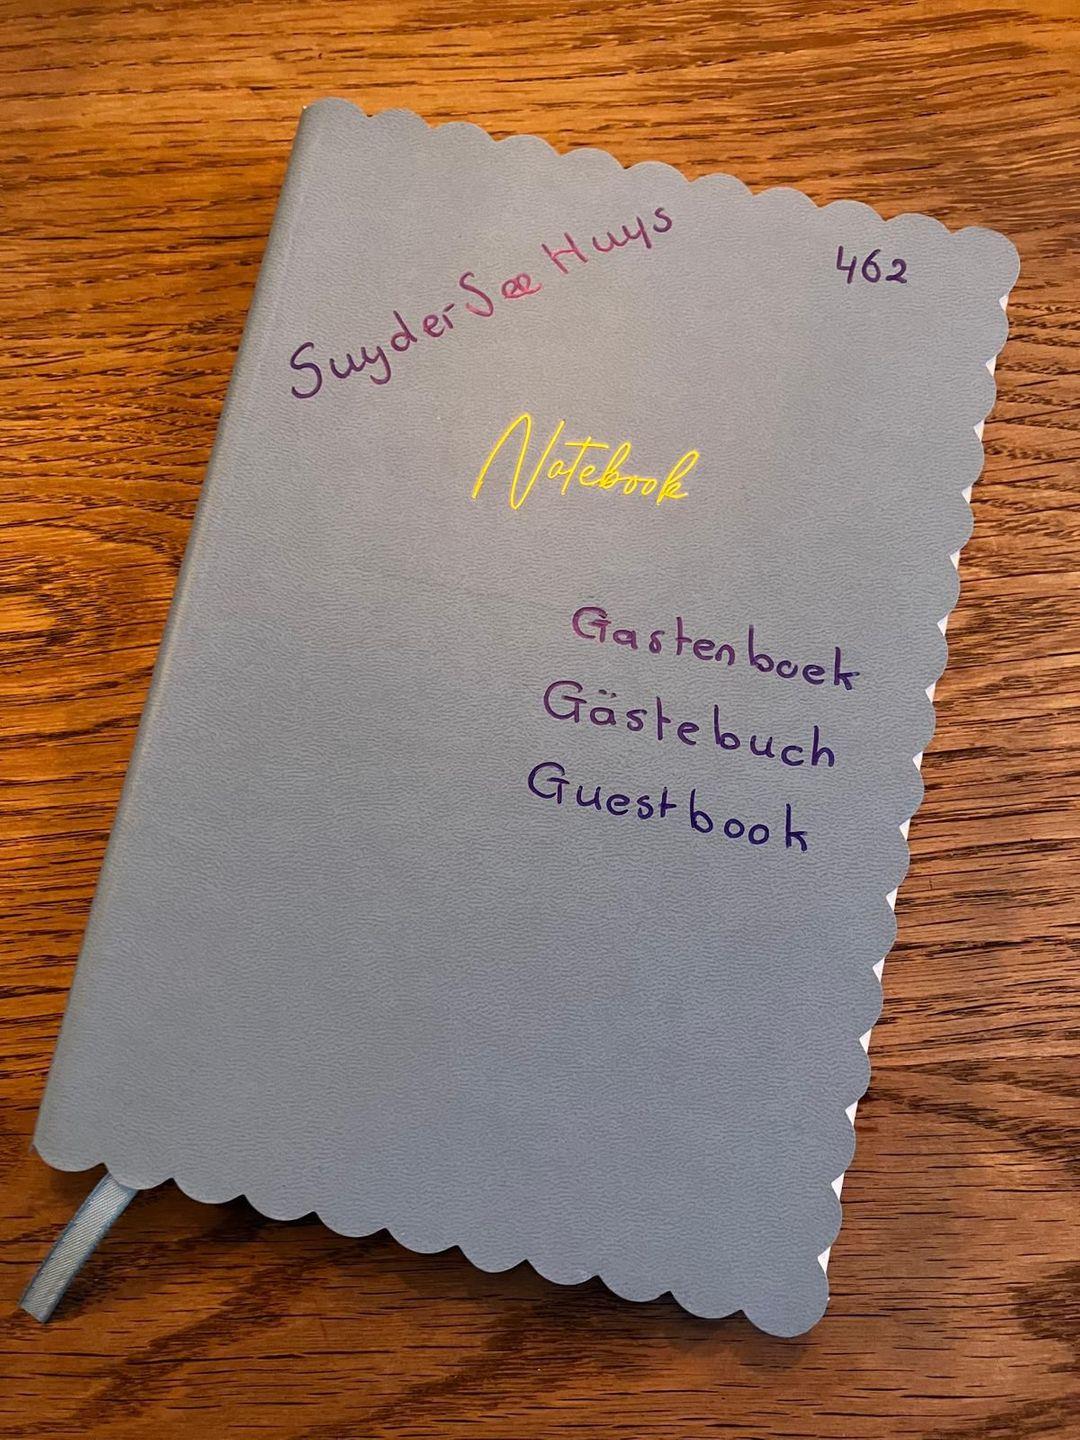 SuyderSee Huys
462
Notebook
Gastenboek
Gästebuch
Guestbook